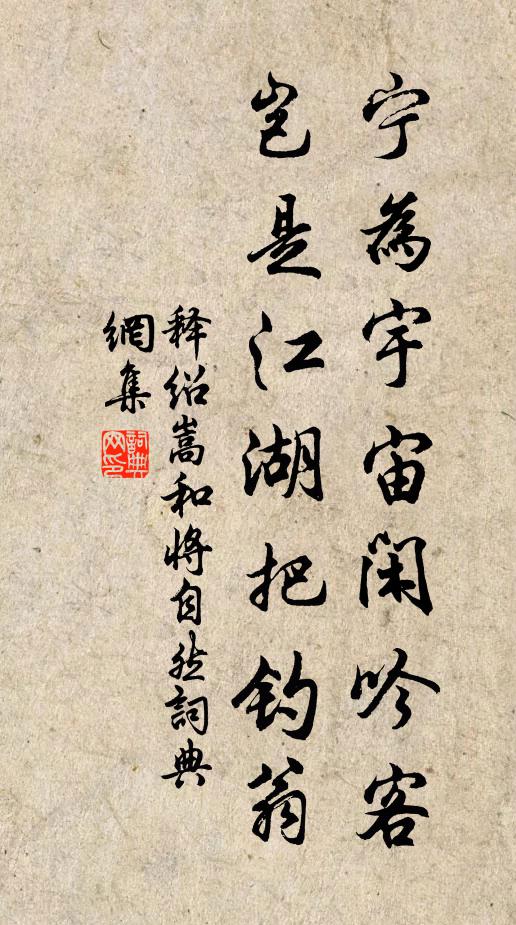 宁為宇宙閑吟客
岂是江湖把钓翁
释绍嵩和将自然詞典
網集
詞典
网印